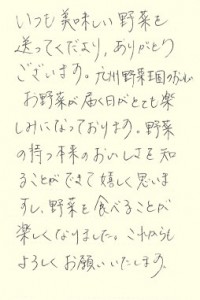 いつも美味しい野菜を
送ってくださり、ありがとう
ございます。九州野菜王国の
お野菜が届く日がとても楽
しみになっております。野菜
の持つ本来のおいしさを知
ることができて嬉しく思いま
すし、野菜を食べることが
楽しくなりました。これからも
よろしくお願いいたします。